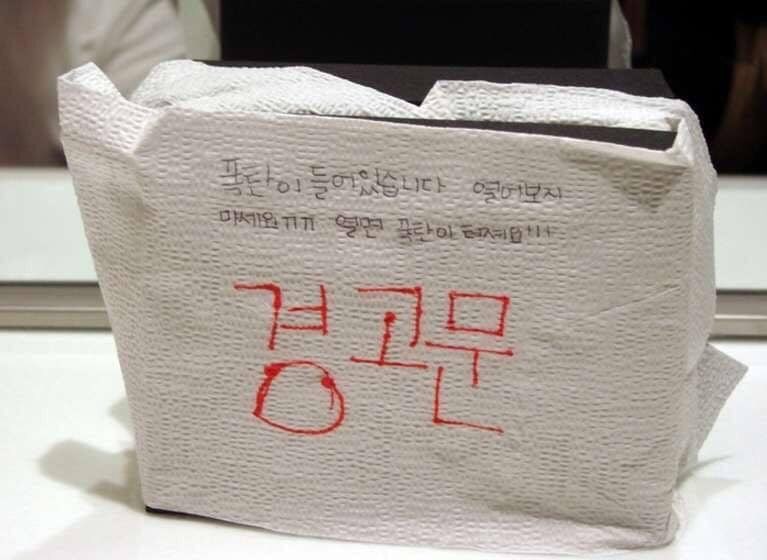 폭탄이 들어있습니다 열어보지
마세요ㄲㄲ 열면 폭탄이 터져요!!!
경고문